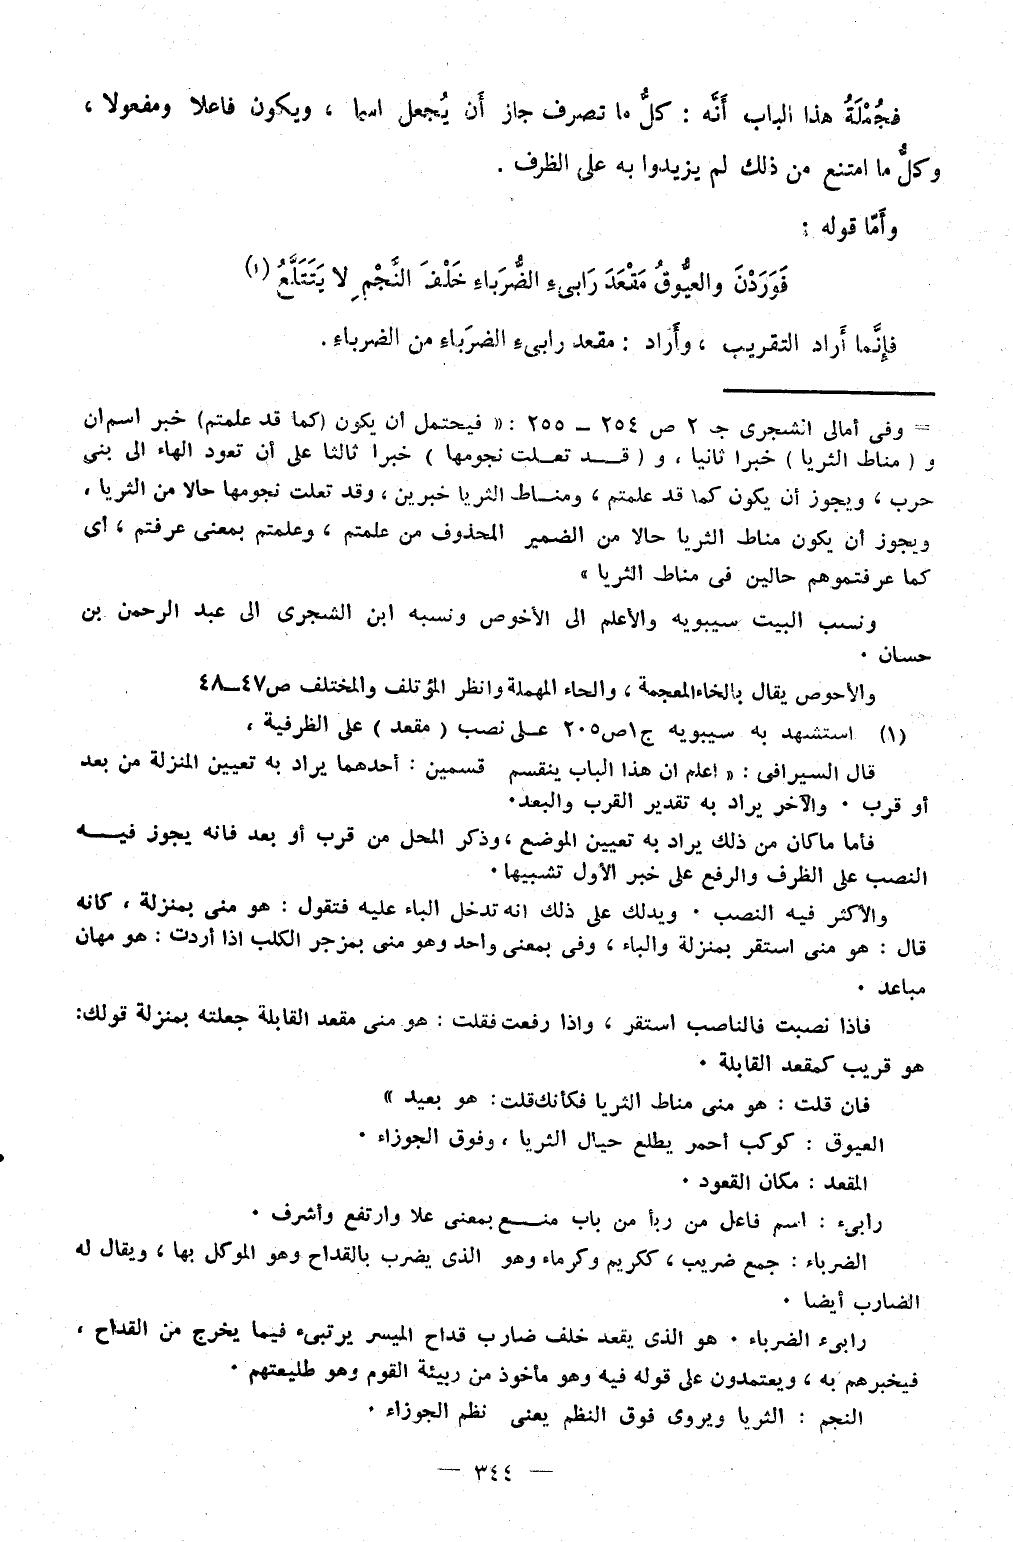 فجُمْلَةُ هذا الباب أَنَّه : كلُّ ما تصرف جاز أَن يُجعل اسما ، ويكون فاعلا ومفعولا ،
وكلُّ ما امتنع من ذلك لم يزيدوا به على الظرف .
وأَمّا قوله :
فَوَرَدْنَ والعيُّوقُ مَقْعَدَ رَابىءِ الضُّرَبَاءِ خَلْفَ النَّجْمِ لا يَتَتَلَّعُ (١)
فإنَّما أَراد التقريب ، وأَراد : مقعد رابىءِ الضرَباءِ من الضرباءِ .
= وفى أمالى الشجرى جـ ٢ ص ٢٥٤ – ٢٥٥ : « فيحتمل أن يكون (كما قد علمتم) خبر اسم ان
و ( مناط الثريا ) خبرا ثانيا ، و ( قــد تعـلت نجومها ) خبرا ثالثا على أن تعود الهاء الى بنى
حرب ، ويجوز أن يكون كما قد علمتم ، ومنــاط الثريا خبرين ، وقد تعلت نجومها حالا من الثريا ،
ويجوز أن يكون مناط الثريا حالا من الضمير المحذوف من علمتم ، وعلمتم بمعنى عرفتم ، أى
كما عرفتموهم حالين فى مناط الثريا »
ونسب البيت سيبويه والأعلم الى الأخوص ونسبه ابن الشجرى الى عبد الرحمن بن
حسان ٠
والأحوص يقال بالخاء المعجمة ، والحاء المهملة وانظر المؤتلف والمختلف ص٤٧–٤٨
(١) استشهد به سيبويه ج١ص٢٠٥ عـلى نصب ( مقعد ) على الظرفية ،
قال السيرافى : « اعلم ان هذا الباب ينقسم قسمين : أحدهما يراد به تعيين المنزلة من بعد
أو قرب ٠ والآخر يراد به تقدير القرب والبعد٠
فأما ماكان من ذلك يراد به تعيين الموضع ،وذكر المحل من قرب أو بعد فانه يجوز فيــه
النصب على الظرف والرفع على خبر الأول تشبيها٠
والأكثر فيه النصب ٠ ويدلك على ذلك انه تدخل الباء عليه فتقول : هو منى بمنزلة ، كانه
قال : هو منى استقر بمنزلة والباء ، وفى بمعنى واحد وهو منى بمزجر الكلب اذا أردت : هو مهان
مباعد ٠
فاذا نصبت فالناصب استقر ، واذا رفعت فقلت : هو منى مقعد القابلة جعلته بمنزلة قولك:
هو قريب كمقعد القابلة ٠
فان قلت : هو منى مناط الثريا فكأنك قلت: هو بعيد »
العيوق : كوكب أحمر يطلع حيال الثريا ، وفوق الجوزاء ٠
المقعد : مكان القعود ٠
رابىء : اسم فاعل من ربأ من باب منــع بمعنى علا وارتفع وأشرف ٠
الضرباء : جمع ضريب ، ككريم وكرماء وهو الذى يضرب بالقداح وهو الموكل بها ، ويقال له
الضارب أيضا ٠
رابىء الضرباء ٠ هو الذى يقعد خلف ضارب قداح الميسر يرتبىء فيما يخرج من القداح ،
فيخبرهم به ، ويعتمدون على قوله فيه وهو مأخوذ من ربيئة القوم وهو طليعتهم ٠
النجم : الثريا ويروى فوق النظم يعنى نظم الجوزاء ٠
— ٣٤٤ —